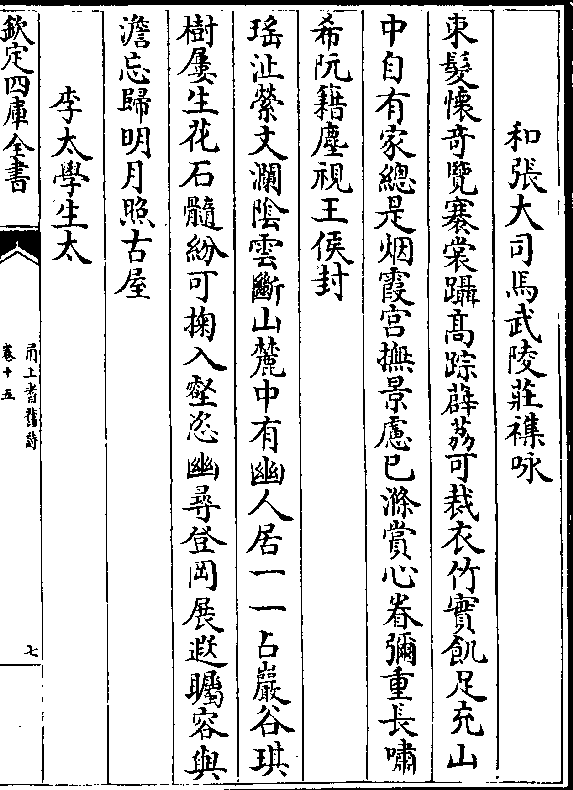 和張大司馬武陵莊襍咏
束髮懷奇覽褰裳躡髙踪薜荔可裁衣竹實飢足充山
中自有家總是烟霞宫撫景慮已滌賞心眷彌重長嘯
希阮籍塵視王侯封
瑤沚縈文瀾陰雲斷山麓中有幽人居一一占巖谷琪
樹屢生花石髓紛可掬入壑恣幽尋登岡展遐矚容與
澹忘歸明月照古屋
李太學生太
欽定四庫全書
甬上耆舊詩
卷十五
七